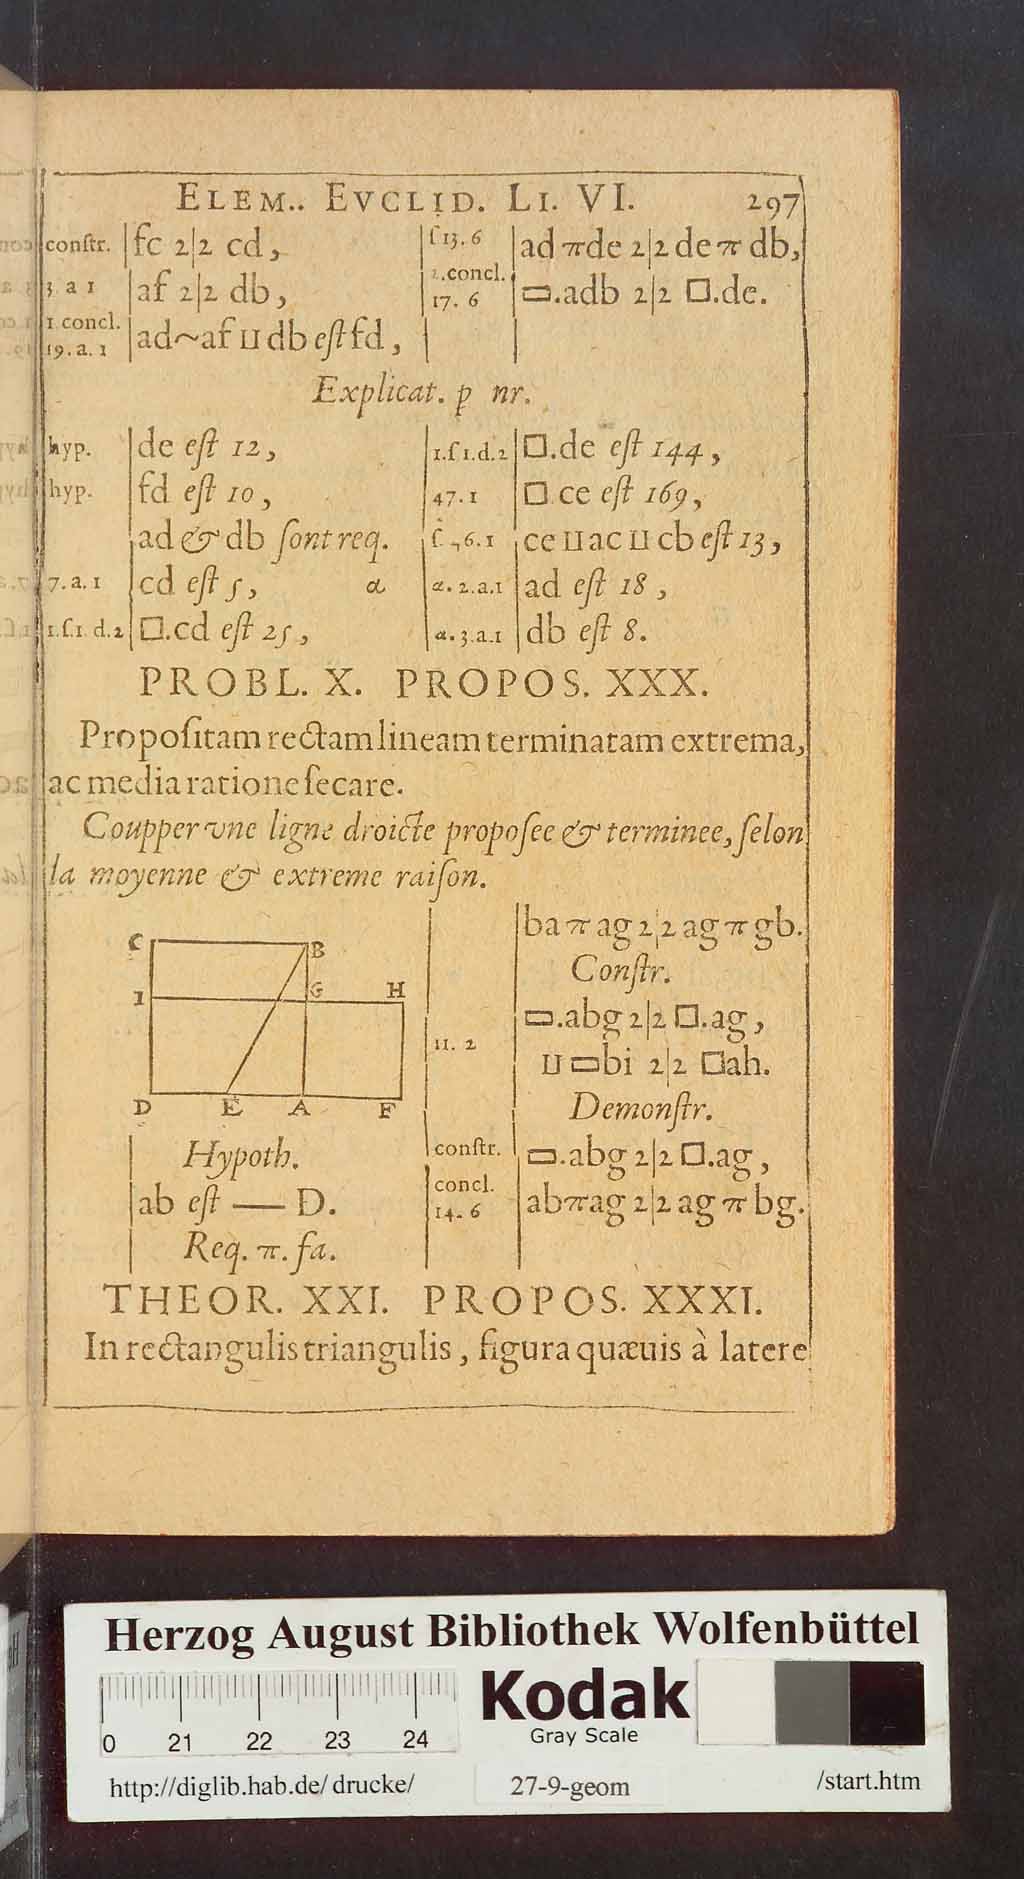 ELEM.. EVCLID. LI. VI. 297
conſtr. fc 2|2 cd,
3. a 1 af 2|2 db,
1. concl.
19. a. 1 ad~af ⊔ db eſt fd,
ſ 13. 6 ad π de 2|2 de π db,
2. concl.
17. 6 ▭.adb 2|2 □.de.
Explicat. p nr.
hyp. de eſt 12,
hyp. fd eſt 10,
ad & db ſont req.
7. a. 1 cd eſt 5, α
1.ſ 1. d.2 □.cd eſt 25,
1.ſ 1.d.2 □.de eſt 144,
47. 1 □ ce eſt 169,
ce ⊔ ac ⊔ cb eſt 13,
α. 2.a.1 ad eſt 18,
α. 3.a.1 db eſt 8.
PROBL. X. PROPOS. XXX.
Propoſitam rectam lineam terminatam extrema,
ac media ratione ſecare.
Coupper vne ligne droicte propoſee & terminee, ſelon
la moyenne & extreme raiſon.
C B
I G H
D E A F
Hypoth.
ab eſt — D.
Req. π. fa.
ba π ag 2|2 ag π gb.
Conſtr.
▭.abg 2|2 □.ag,
11. 2 ⊔ ▭bi 2|2 □ah.
Demonſtr.
conſtr. ▭.abg 2|2 □.ag,
concl.
14. 6 ab π ag 2|2 ag π bg.
THEOR. XXI. PROPOS. XXXI.
In rectangulis triangulis, figura quæuis à latere
Herzog August Bibliothek Wolfenbüttel
Kodak
Gray Scale
0 21 22 23 24
http://diglib.hab.de/ drucke/ 27-9-geom /start.htm